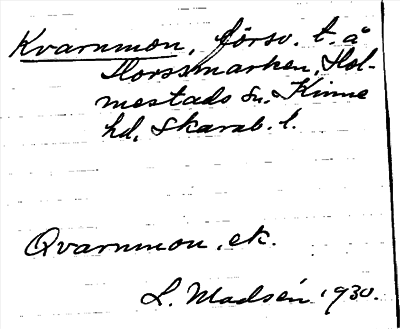 Kvarnmon, försv. t. å
Horssmarken, Hol-
mestads sn. Kinne
hd, Skarab. l.
Qvarnmon, ek.
L. Madsén 1930.